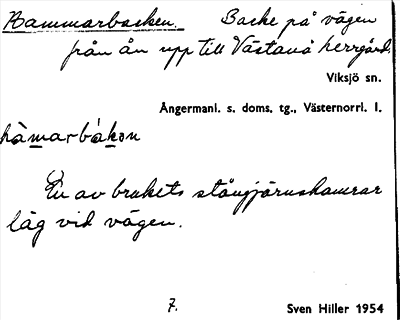 Hammarbacken. Backe på vägen
från ån upp till Västanå herrgård.
Viksjö sn.
Ångermanl. s. doms. tg., Västernorrl. l.
hàmarbákən
En av brukets stångjärnshamrar
låg vid vägen.
7. Sven Hiller 1954